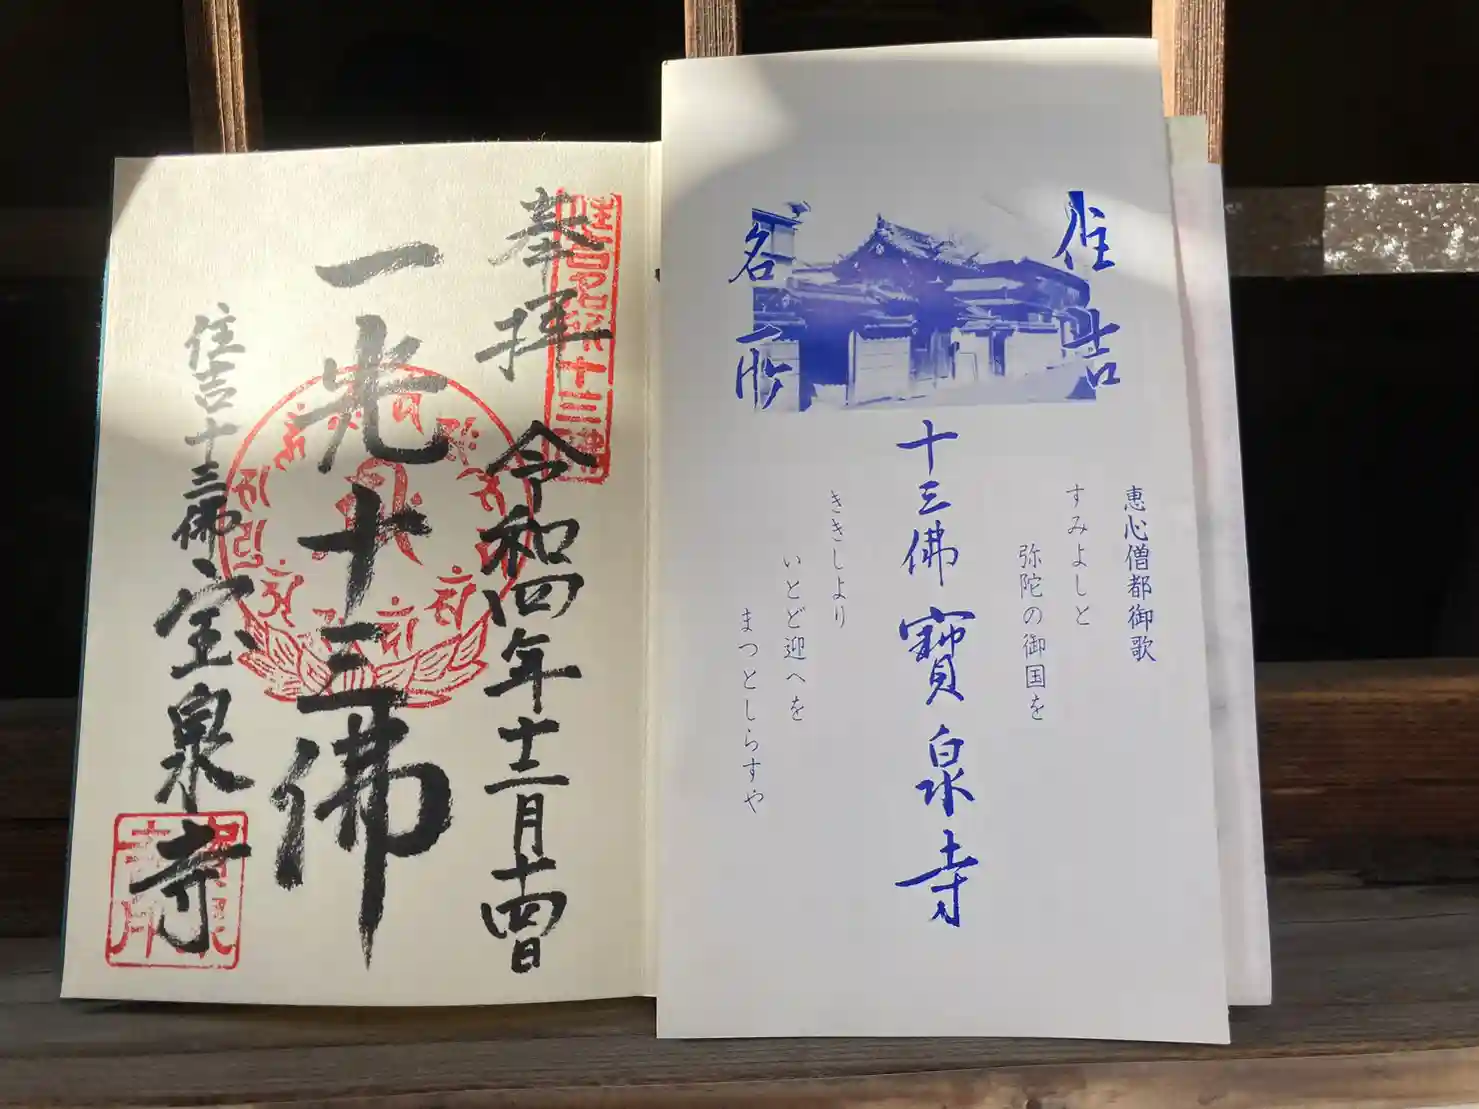 住吉
名所
十三佛寶泉寺
恵心僧都御歌
すみよしと
弥陀の御国を
ききしより
いとど迎へを
まつとしらすや
奉拝
住吉名所十三佛
令和四年十二月十四日
一光十三佛
住吉十三佛
宝泉寺